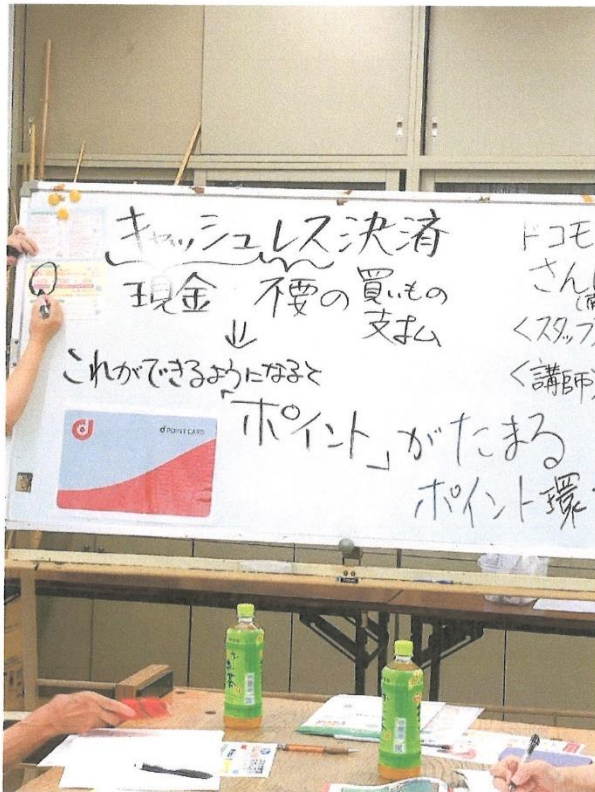 キャッシュレス決済
現金 不要の買いもの
支払ム
↓
これができるようになると
「ポイント」がたまる
ポイント環
ドコモ
さん
<スタッフ
<講師
d POINT CARD